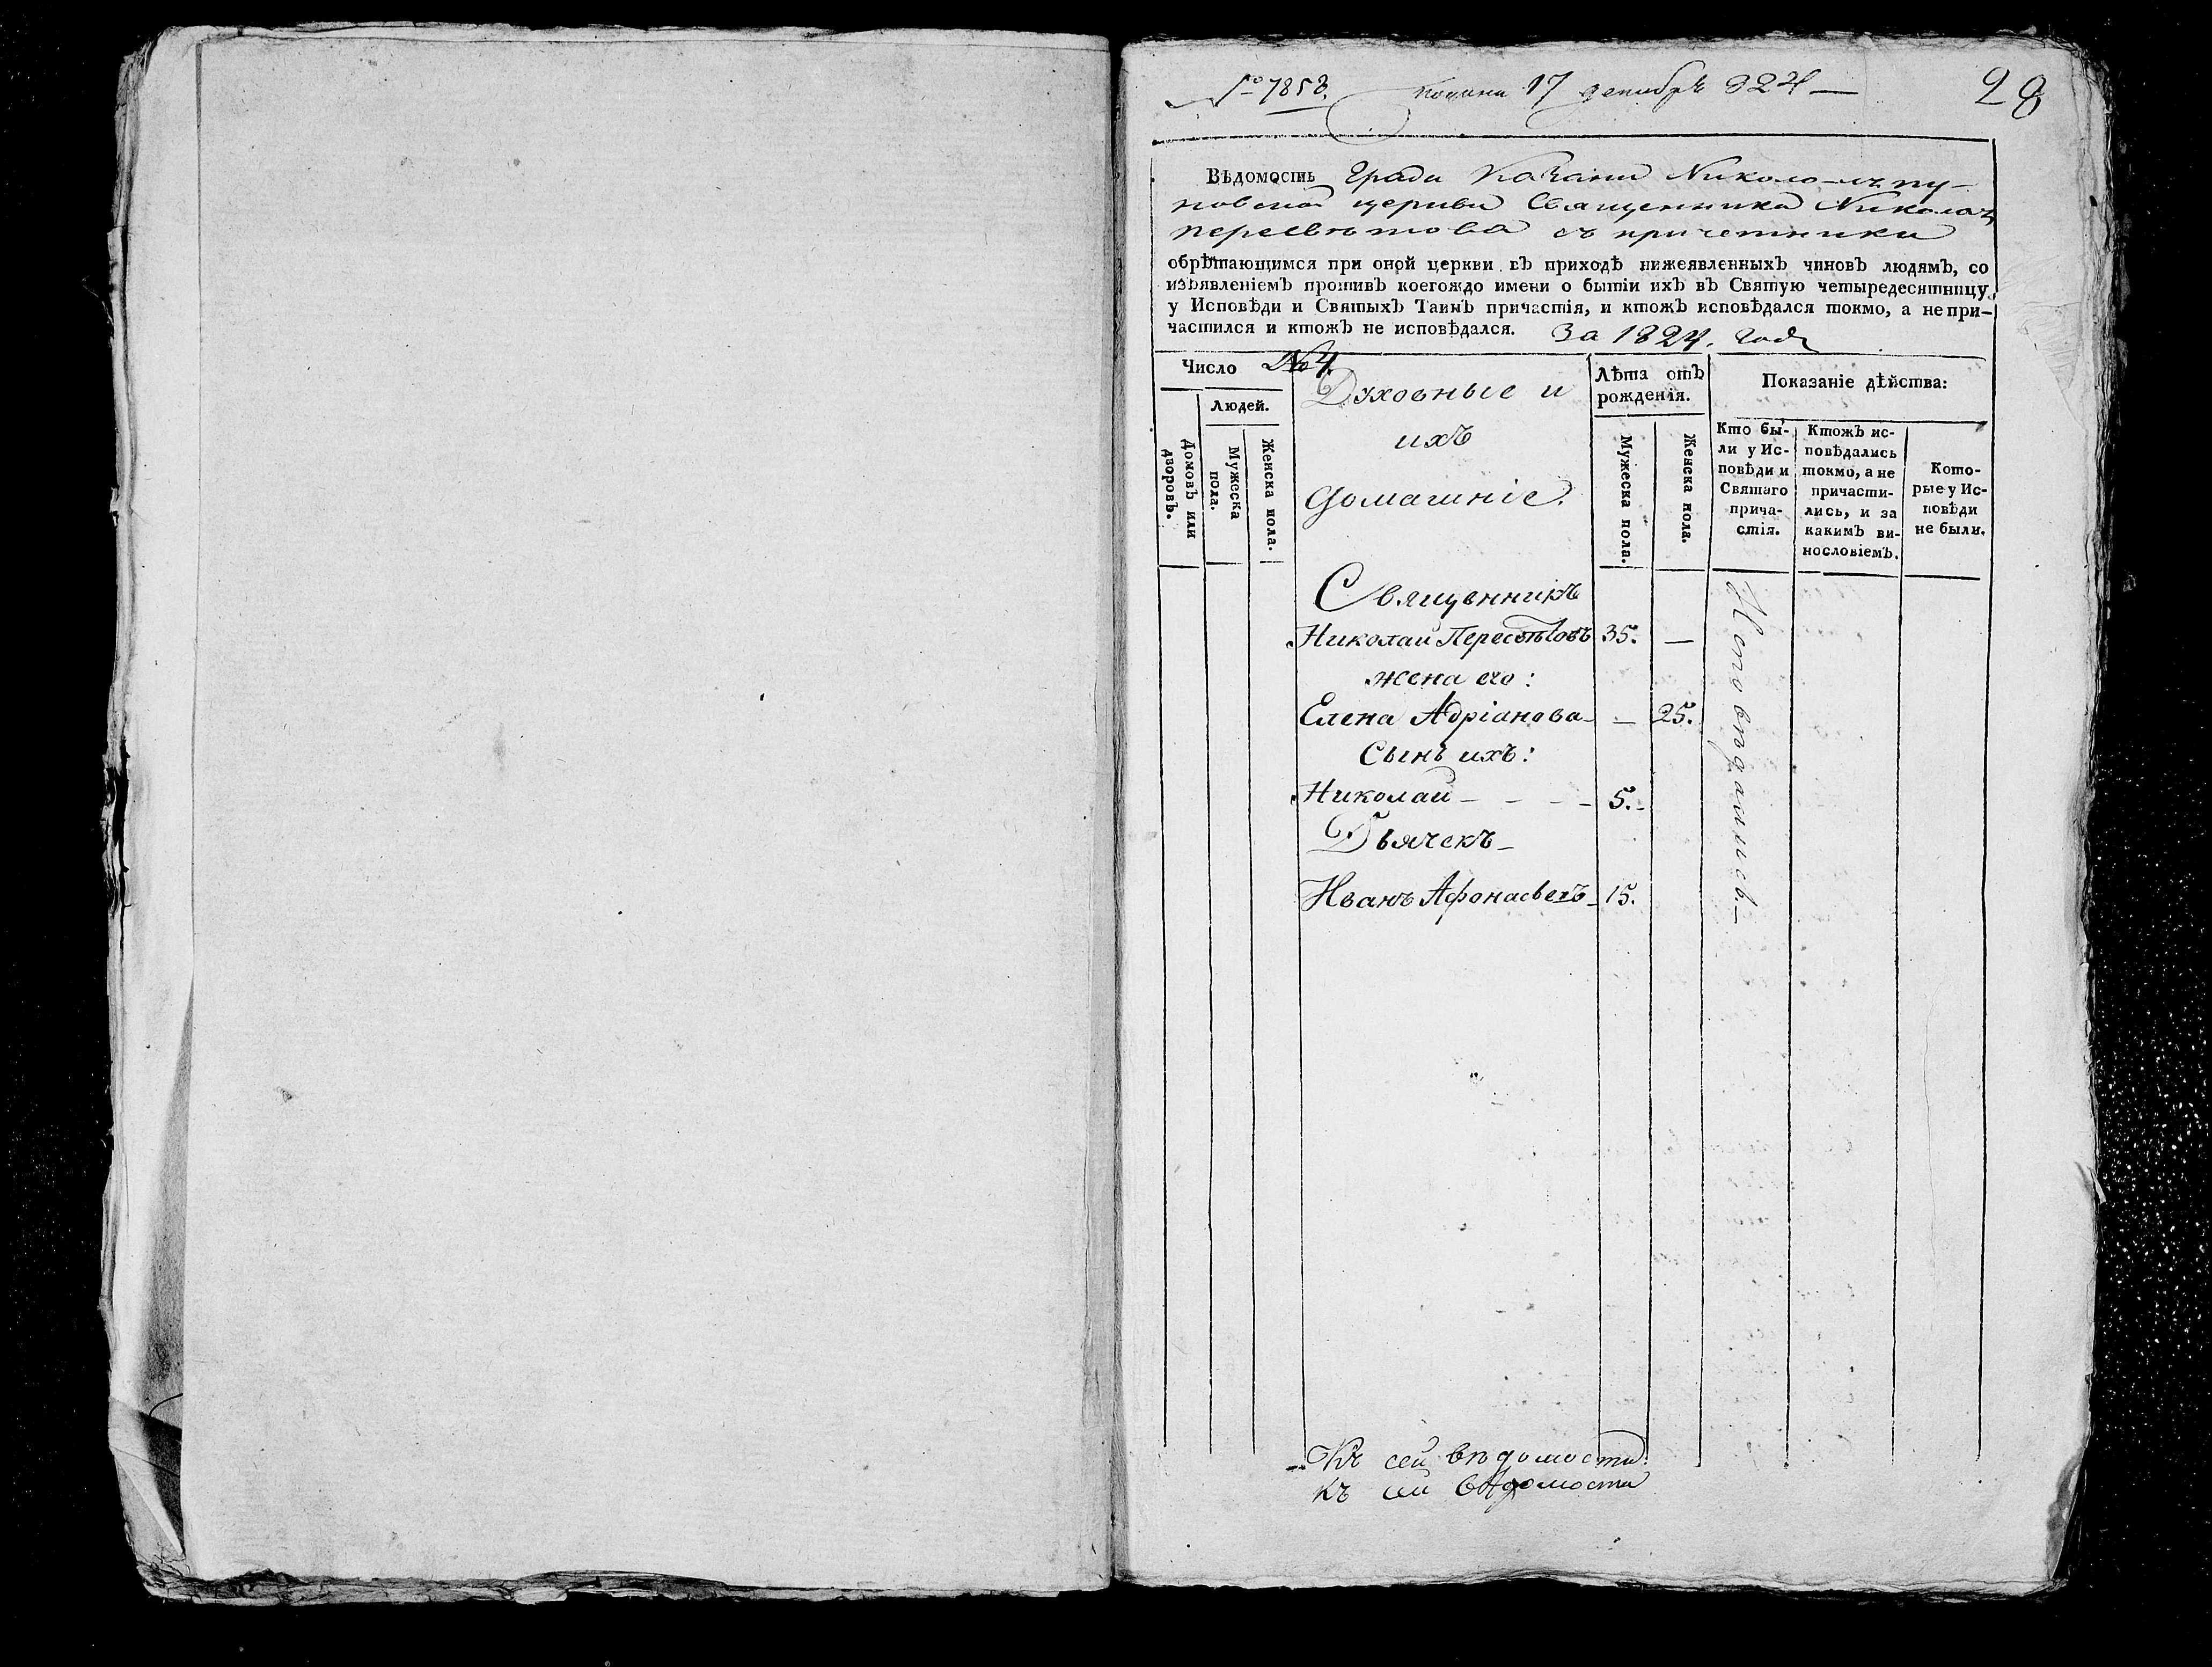 № 7853. подана 17 декабрь 824 —
28
Вѣдомость Града Казани Николо-ляпу-
новской церкви Священника Николая
Пересвѣтова съ причетники
обрѣтающимся при оной церкви въ приходѣ нижеявленныхъ чиновъ людямъ, со
изъявленіемъ противъ коегождо имени о бытіи ихъ въ Святую четыредесятницу
у Исповѣди и Святыхъ Таинъ причастія, и ктожъ исповѣдался токмо, а не при-
частился и ктожъ не исповѣдался. За 1824. годъ
Число
№ 4.
Людей.
Домовъ или дворовъ.
Мужеска пола.
Женска пола.
Духовные и
ихъ
домашніе.
Лѣта отъ рожденія.
Мужеска пола.
Женска пола.
Показаніе дѣйства:
Кто бы-
ли у Ис-
повѣди и
Святаго
прича-
стія.
Ктожъ ис-
повѣдались
токмо, а не
причасти-
лись, и за
какимъ ви-
нословіемъ.
Кото-
рые у Ис-
повѣди
не были.
Священникъ
Николай Пересвѣтовъ 35. —
жена его:
Елена Адріанова — — 25.
Сынъ ихъ:
Николай — — — — 5. —
Дьячекъ —
Иванъ Афонасьевъ — 15.
Исповѣдались. —
Къ сей вѣдомости
къ сей вѣдомости